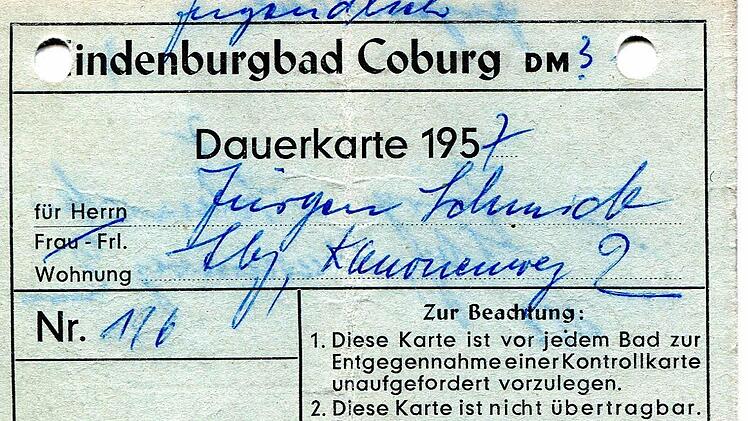 Jugendlich
Hindenburgbad Coburg DM 3
Dauerkarte 1957
für Herrn Jürgen Schmidt
Frau - Frl.
Wohnung Cbg, Kanonenweg 2
Nr. 116
Zur Beachtung:
1. Diese Karte ist vor jedem Bad zur
Entgegennahme einer Kontrollkarte
unaufgefordert vorzulegen.
2. Diese Karte ist nicht übertragbar.